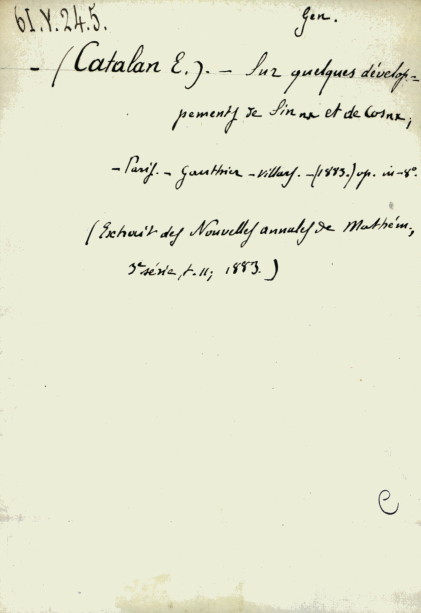 61.Y.24.5.
Gen.
- (Catalan E.). - Sur quelques dévelop=
pements de Sin nx et de Cosnx,
- Paris. - Gauthier-Villars. - (1883.) op. in-8°.
(Extrait des Nouvelles annales de Mathém.,
3e série, t. II; 1883.)
C